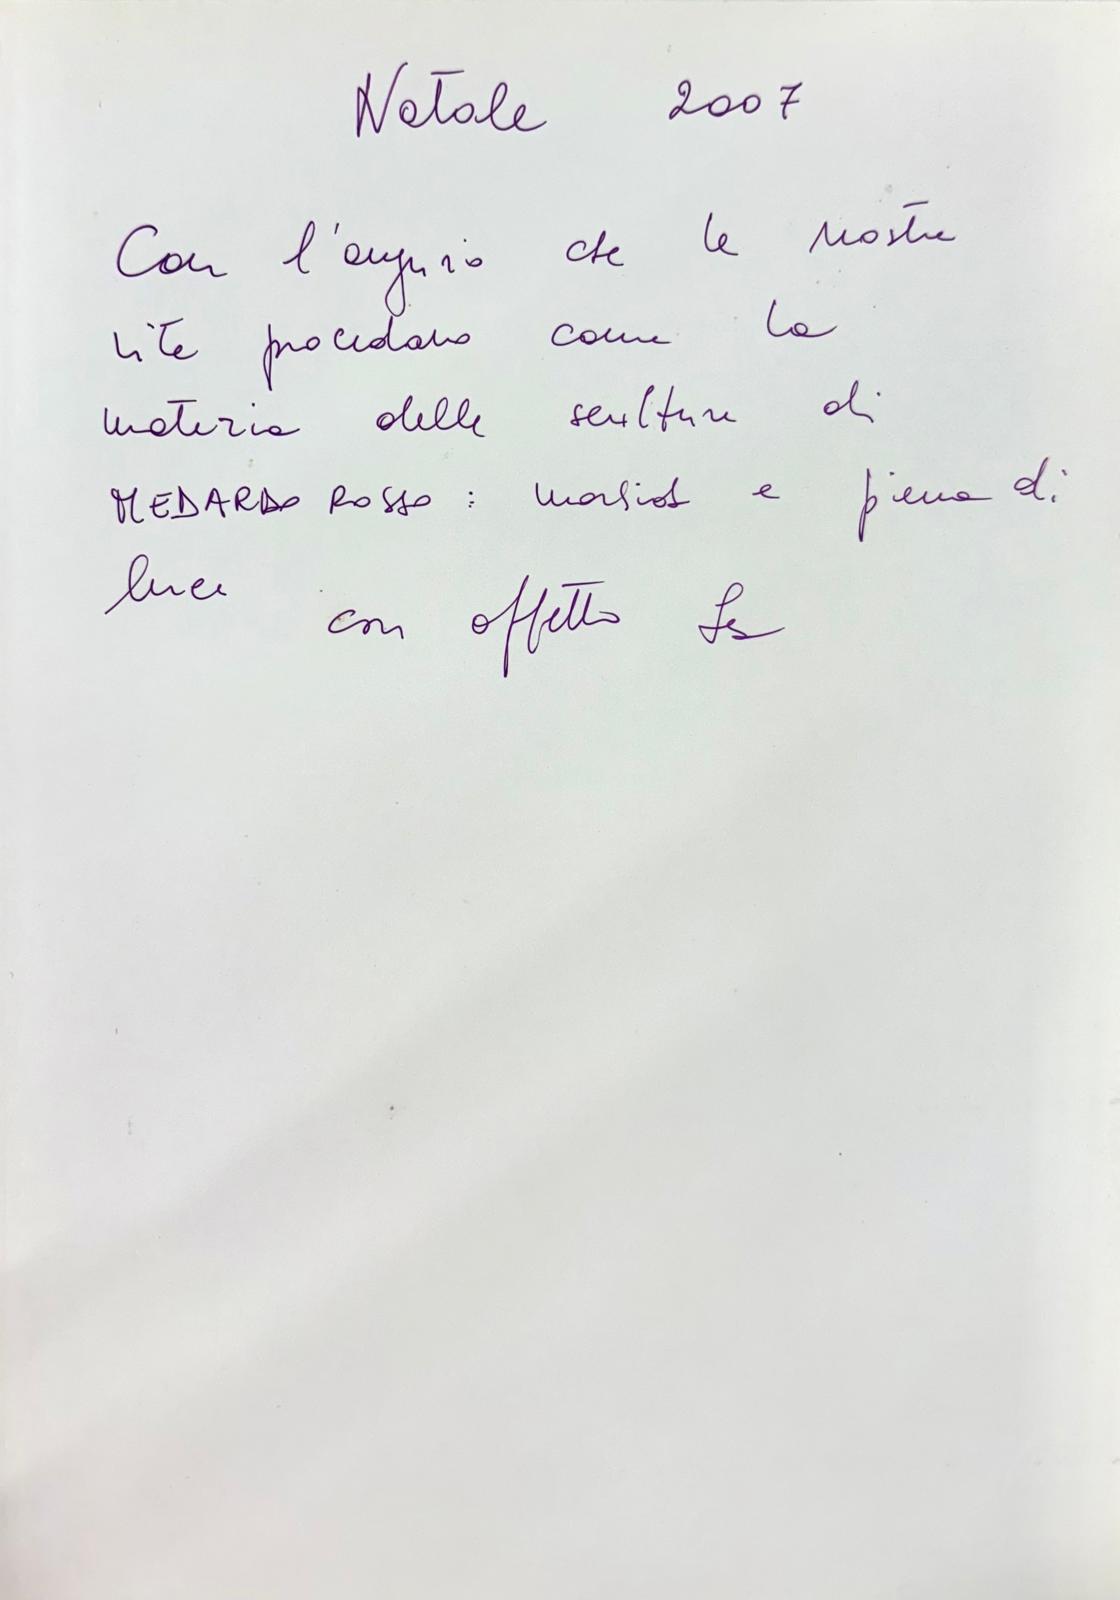 Natale 2007
Con l'augurio che le nostre
vite procedano come la
materia delle sculture di
MEDARDO ROSSO : morbida e piena di
luce
con affetto